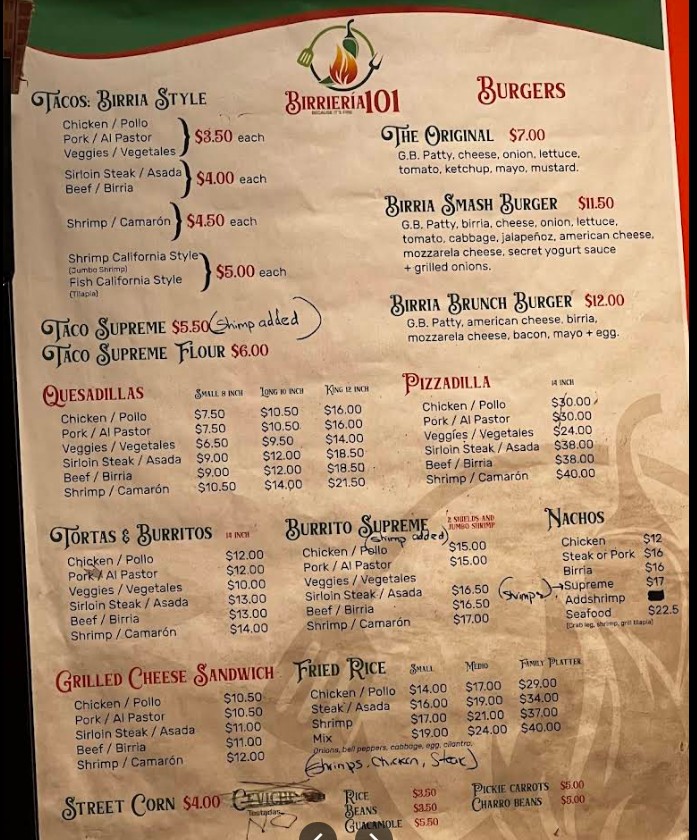 BIRRIERÍA101
BECAUSE IT'S FIRE
TACOS: BIRRIA STYLE
Chicken / Pollo
Pork / Al Pastor
Veggies / Vegetales
$3.50 each
Sirloin Steak / Asada
Beef / Birria
$4.00 each
Shrimp / Camarón
$4.50 each
Shrimp California Style
(Jumbo Shrimp)
Fish California Style
(Tilapia)
$5.00 each
TACO SUPREME $5.50 (Shimp added)
TACO SUPREME FLOUR $6.00
BURGERS
THE ORIGINAL $7.00
G.B. Patty, cheese, onion, lettuce,
tomato, ketchup, mayo, mustard.
BIRRIA SMASH BURGER $11.50
G.B. Patty, birria, cheese, onion, lettuce,
tomato, cabbage, jalapeñoz, american cheese,
mozzarela cheese, secret yogurt sauce
+ grilled onions.
BIRRIA BRUNCH BURGER $12.00
G.B. Patty, american cheese, birria,
mozzarela cheese, bacon, mayo + egg.
QUESADILLAS SMALL 8 INCH LONG 10 INCH KING 12 INCH
Chicken / Pollo $7.50 $10.50 $16.00
Pork / Al Pastor $7.50 $10.50 $16.00
Veggies / Vegetales $6.50 $9.50 $14.00
Sirloin Steak / Asada $9.00 $12.00 $18.50
Beef / Birria $9.00 $12.00 $18.50
Shrimp / Camarón $10.50 $14.00 $21.50
PIZZADILLA 14 INCH
Chicken / Pollo $30.00
Pork / Al Pastor $30.00
Veggies / Vegetales $24.00
Sirloin Steak / Asada $38.00
Beef / Birria $38.00
Shrimp / Camarón $40.00
TORTAS & BURRITOS 14 INCH
Chicken / Pollo $12.00
Pork / Al Pastor $12.00
Veggies / Vegetales $10.00
Sirloin Steak / Asada $13.00
Beef / Birria $13.00
Shrimp / Camarón $14.00
BURRITO SUPREME 2 SHIELDS AND JUMBO SHRIMP
(Shimp added)
Chicken / Pollo $15.00
Pork / Al Pastor $15.00
Veggies / Vegetales
Sirloin Steak / Asada $16.50
Beef / Birria $16.50
Shrimp / Camarón $17.00
NACHOS
Chicken $12
Steak or Pork $16
Birria $16
(Shrimps) → Supreme $17
Addshrimp
Seafood $22.5
(Crab leg, shrimp, grill tilapia)
GRILLED CHEESE SANDWICH
Chicken / Pollo $10.50
Pork / Al Pastor $10.50
Sirloin Steak / Asada $11.00
Beef / Birria $11.00
Shrimp / Camarón $12.00
FRIED RICE SMALL MEDIO FAMILY PLATTER
Chicken / Pollo $14.00 $17.00 $29.00
Steak / Asada $16.00 $19.00 $34.00
Shrimp $17.00 $21.00 $37.00
Mix $19.00 $24.00 $40.00
Onions, bell peppers, cabbage, egg, cilantro.
(Shrimps, Chicken, Steak)
STREET CORN $4.00
CEVICHE
Tostadas
NO
RICE $3.50
BEANS $3.50
GUACAMOLE $5.50
PICKLE CARROTS $5.00
CHARRO BEANS $5.00